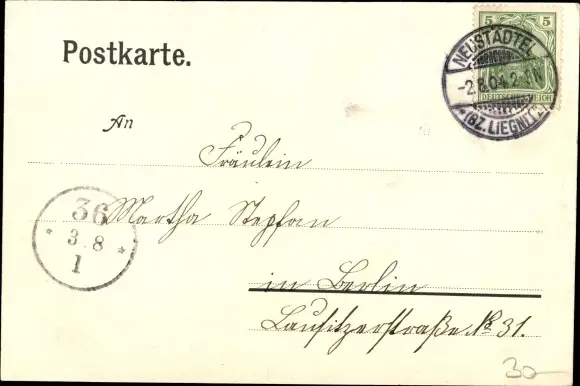 Postkarte.
5 5
DEUTSCHES REICH
NEUSTÄDTEL
-2.8.04. 2-3N
*(BZ. LIEGNITZ)*
An
Fräulein
Martha Stephan
in Berlin
Lausitzerstraße № 31.
36
* 3.8 *
1
30-